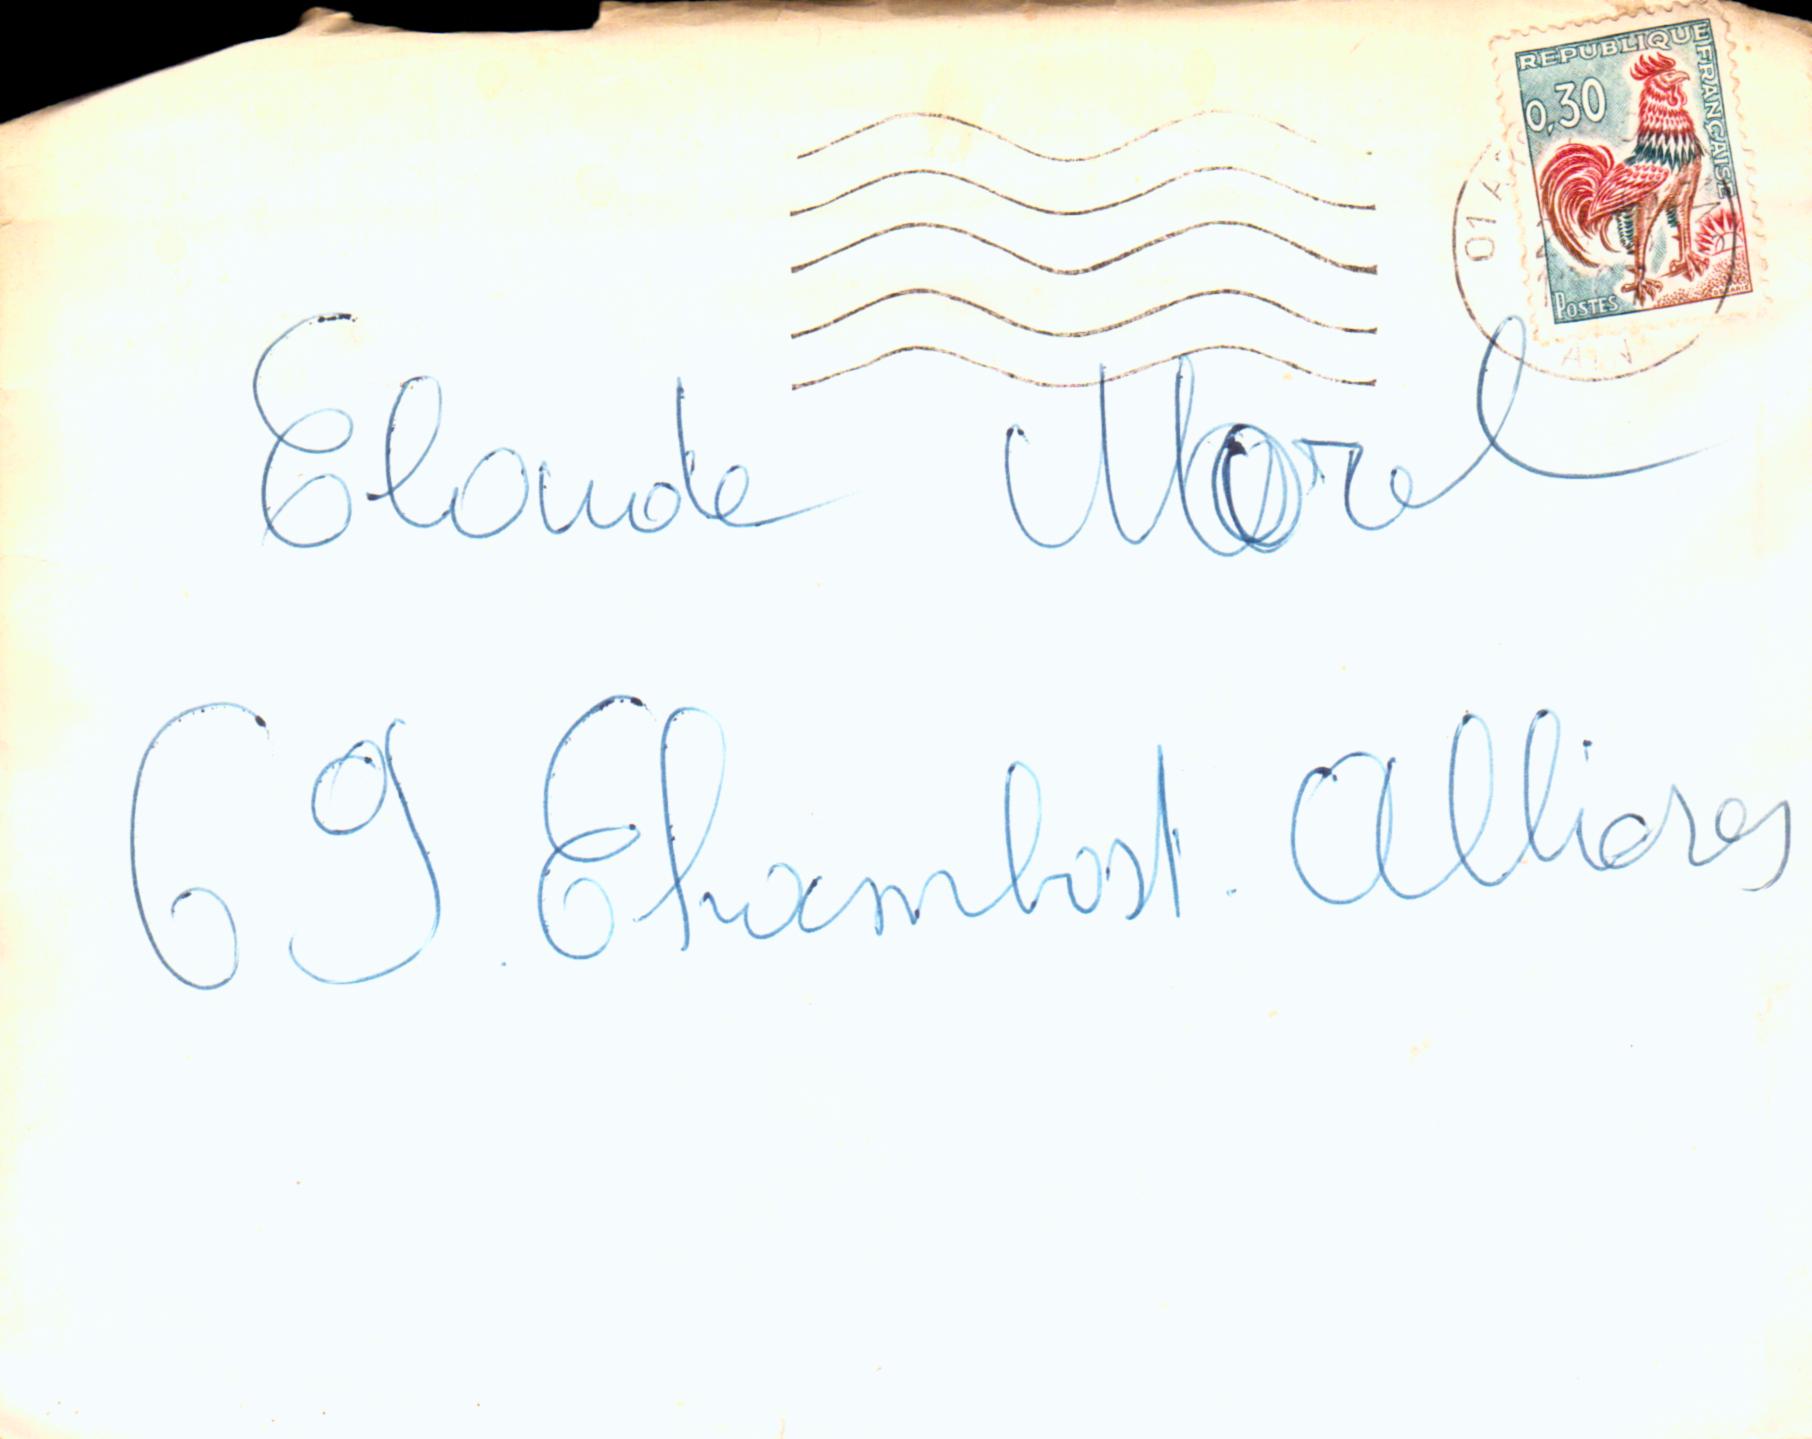 REPUBLIQUE FRANÇAISE
0,30
POSTES
01 A
AIN
Claude Morel
69. Chambost. Allières